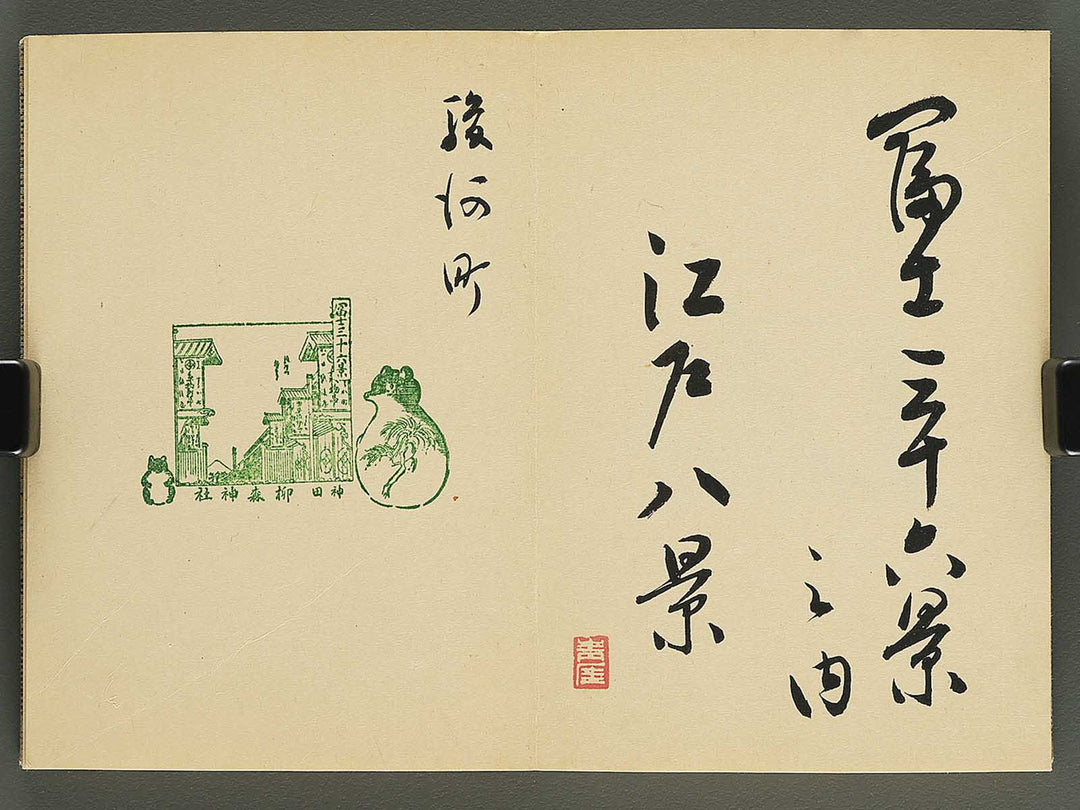 冨士三十六景
之内
江戸八景
駿河町
冨士三十六景
神田柳森神社